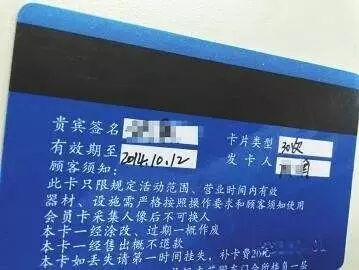 贵宾签名
卡片类型 30次
有效期至 2014.10.12
发卡人
顾客须知：
此卡只限规定活动范围、营业时间内有效
器材、设施需严格按照操作要求和顾客须知使用
会员卡采集人像后不可换人
本卡一经涂改、过期一概作废
本卡一经售出概不退款
本卡如丢失请第一时间挂失，补卡费20元